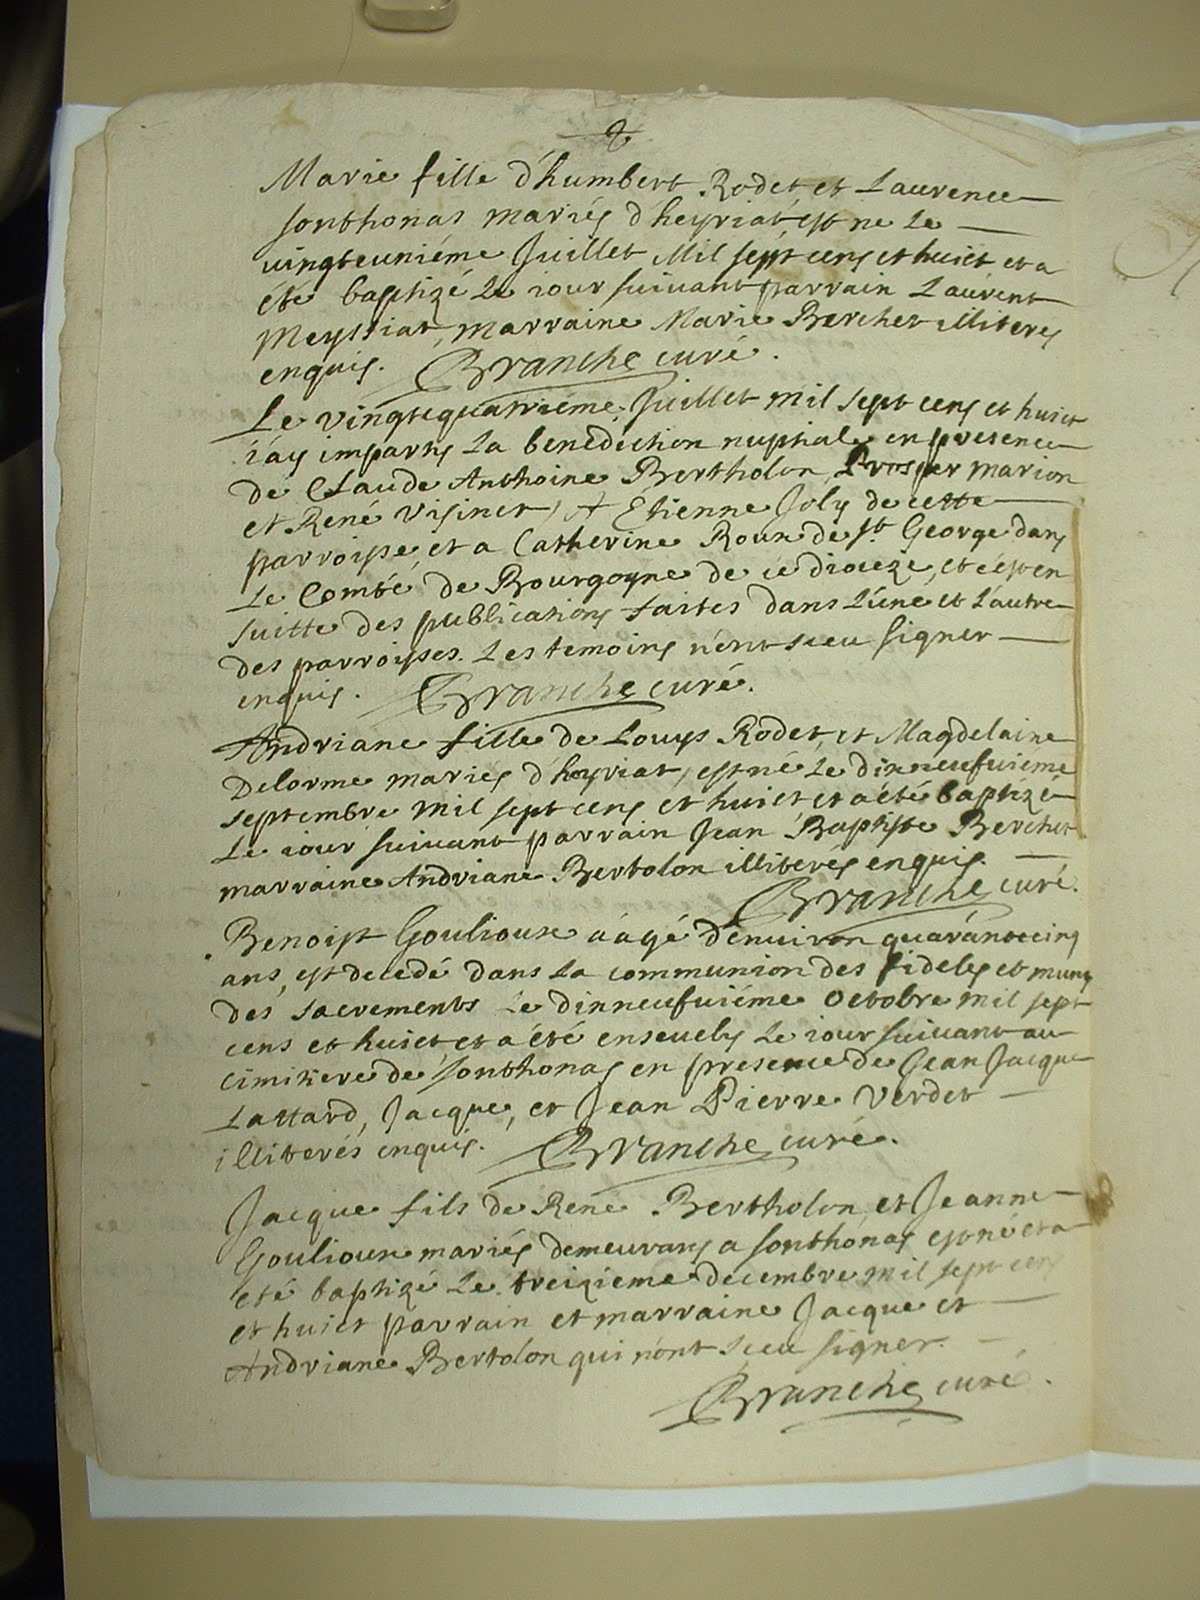 Marie fille d'humbert Rodet, et Laurence
sonthonas mariés d'heyriat, est ne le
vingteuniéme Juillet Mil sept cens et huict et a
été baptizé le iour suivant parrain Laurent
Meyssiat, marraine Marie Berchet illiterés
enquis. Branche curé.
Le vingtquatriéme Juillet mil sept cens et huict
i'ay imparty la benediction nuptiale en presence
de Claude Anthoine Bertholon, Prosper marion
et René Visinet, A Etienne Joly de cette
parroisse, et a Catherine Roux de St. George dans
le Comté de Bourgogne de ce dioceze, et c'est en
suitte des publications faites dans L'une et L'autre
des parroisses. Les temoins n'ont sceu signer
enquis. Branche curé.
Andriane fille de Louys Rodet, et Magdelaine
Delorme mariés d'heyriat, est né le dixneufuiéme
septembre mil sept cens et huict, et a été baptizé
le iour suivant parrain Jean Baptiste Berchet
marraine Andriane Bertolon illiterés enquis.
Branche curé.
Benoist Goulioux áagé d'environ quarante cinq
ans, est decedé dans la communion des fideles et muny
des sacrements le dixneufuiéme octobre mil sept
cens et huict et a été ensevely le iour suivant au
cimitiere de sonthonas en presence de Jean Jacque
Lattard, Jacque, et Jean Pierre Verdet
illiterés enquis. Branche curé.
Jacque fils de René Bertholon, et Jeanne
Goulioux mariés demeurans a sonthonas est né et a
été baptizé le treizieme decembre mil sept cens
et huict parrain et marraine Jacque et
Andriane Bertolon qui n'ont sceu signer.
Branche curé.